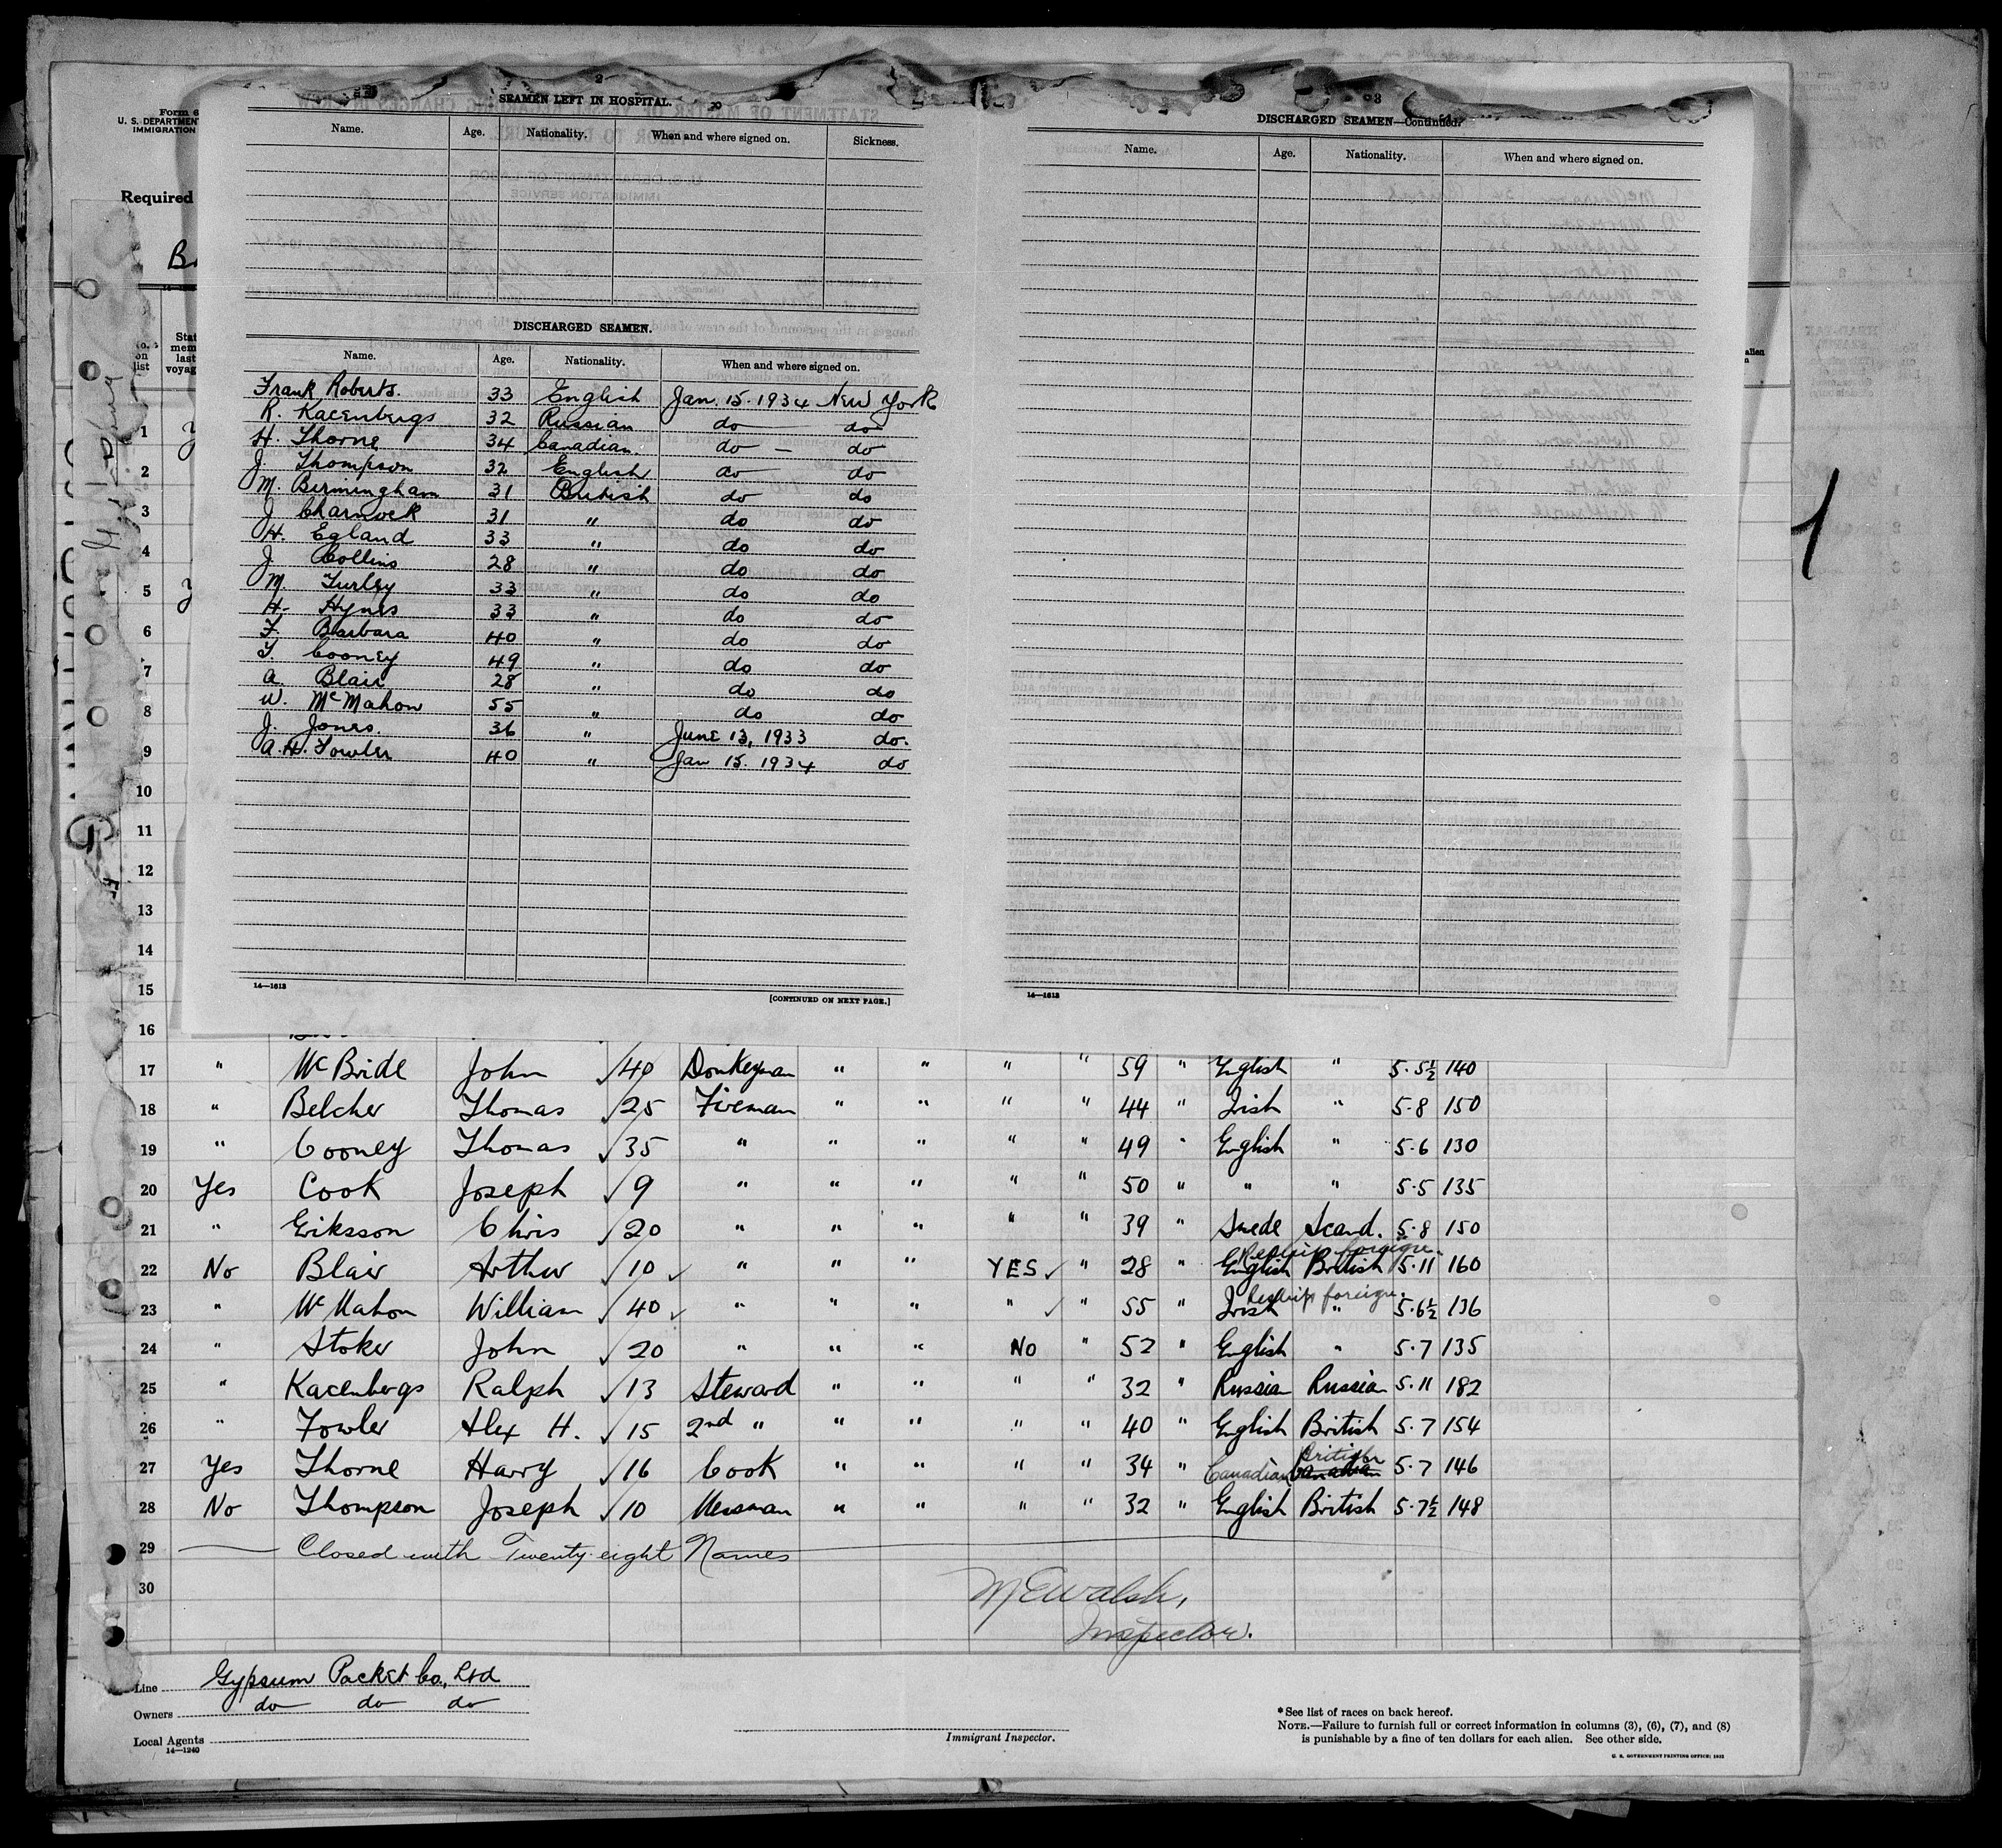 Form 6
U. S. DEPARTMENT
IMMIGRATION
Required
No. on list
2
SEAMEN LEFT IN HOSPITAL.
Name. Age. Nationality. When and where signed on. Sickness.
DISCHARGED SEAMEN.
Name. Age. Nationality. When and where signed on.
Frank Roberts. 33 English Jan. 15. 1934 New York
R. Kacenbergs 32 Russian do do
H. Thorne 34 Canadian. do — do
J. Thompson 32 English do do
M. Birmingham 31 British do do
J Charnock 31 " do do
H. Egland 33 " do do
J Collins 28 " do do
M. Turley 33 " do do
H. Hynes 33 " do do
F. Barbara 40 " do do
T. Cooney 49 " do do
A. Blair 28 " do do
W. McMahon 55 " do do
J. Jones. 36 " June 13, 1933 do.
A. H. Fowler 40 " Jan 15. 1934 do
14—1613
[CONTINUED ON NEXT PAGE.]
3
DISCHARGED SEAMEN—Continued.
Name. Age. Nationality. When and where signed on.
14—1613
1
2
3
4
5
6
7
8
9
10
11
12
13
14
15
16
17 " McBride John √ 40 Donkeyman " " " " 59 " English " 5·5½ 140
18 " Belcher Thomas √ 25 Fireman " " " " 44 " Irish " 5·8 150
19 " Cooney Thomas √ 35 " " " " " 49 " English " 5·6 130
20 Yes Cook Joseph √ 9 " " " " " 50 " " " 5·5 135
21 " Eriksson Chris √ 20 " " " " " 39 " Swede Scand. 5·8 150
Reship foreign.
22 No Blair Arthur √ 10 √ " " " YES √ " 28 " English British 5·11 160
Reship foreign.
23 " McMahon William √ 40 √ " " " " √ " 55 " Irish " 5·6½ 136
24 " Stoker John √ 20 " " " No " 52 " English " 5·7 135
25 " Kacenbergs Ralph √ 13 Steward " " " " 32 " Russian Russian 5·11 182
26 " Fowler Alex H. √ 15 2nd " " " " " 40 " English British 5·7 154
27 Yes Thorne Harry √ 16 Cook " " " " 34 " Canadian British Canadian 5·7 146
28 No Thompson Joseph √ 10 Messman " " " " 32 " English British 5·7½ 148
29 Closed with Twenty-eight Names
30
M E Walsh,
Inspector.
Line Gypsum Packet Co., Ltd
Owners do do do
Local Agents
14—1240
Immigrant Inspector.
* See list of races on back hereof.
NOTE.—Failure to furnish full or correct information in columns (3), (6), (7), and (8)
is punishable by a fine of ten dollars for each alien. See other side.
U. S. GOVERNMENT PRINTING OFFICE: 1932